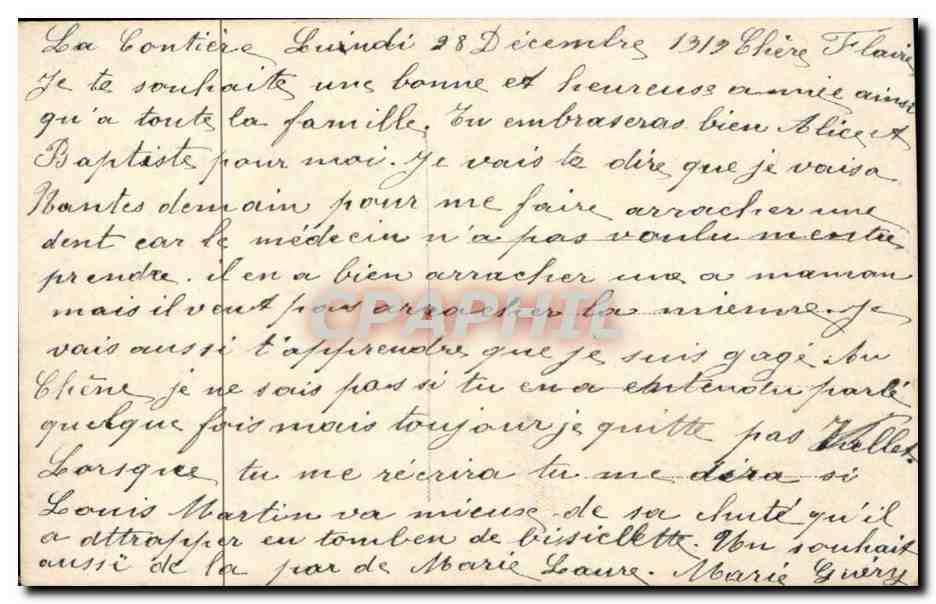 La Contière Luindi 28 Décembre 1912 Chère Flavie
Je te souhaite une bonne et heureuse année ainsi
qu'a toute la famille. Tu embraseras bien Alice et
Baptiste pour moi. Je vais te dire que je vais a
Nantes demain pour me faire arracher une
dent car le médecin n'a pas voulu
prendre. il en a bien arracher une a maman
mais il veut pas arracher la mienne. Je
vais aussi t'apprendre que je suis gagé Au
Chêne je ne sais pas si tu en a entendu parlé
quelque fois mais toujour je quitte pas Vallet.
Lorsque tu me récrira tu me dira si
Louis Martin va mieux de sa chuté qu'il
a dttrapper en tomben de bissiclette. Un souhait
aussi de la par de Marie Laure. Marie Guéry
CPAPHIL